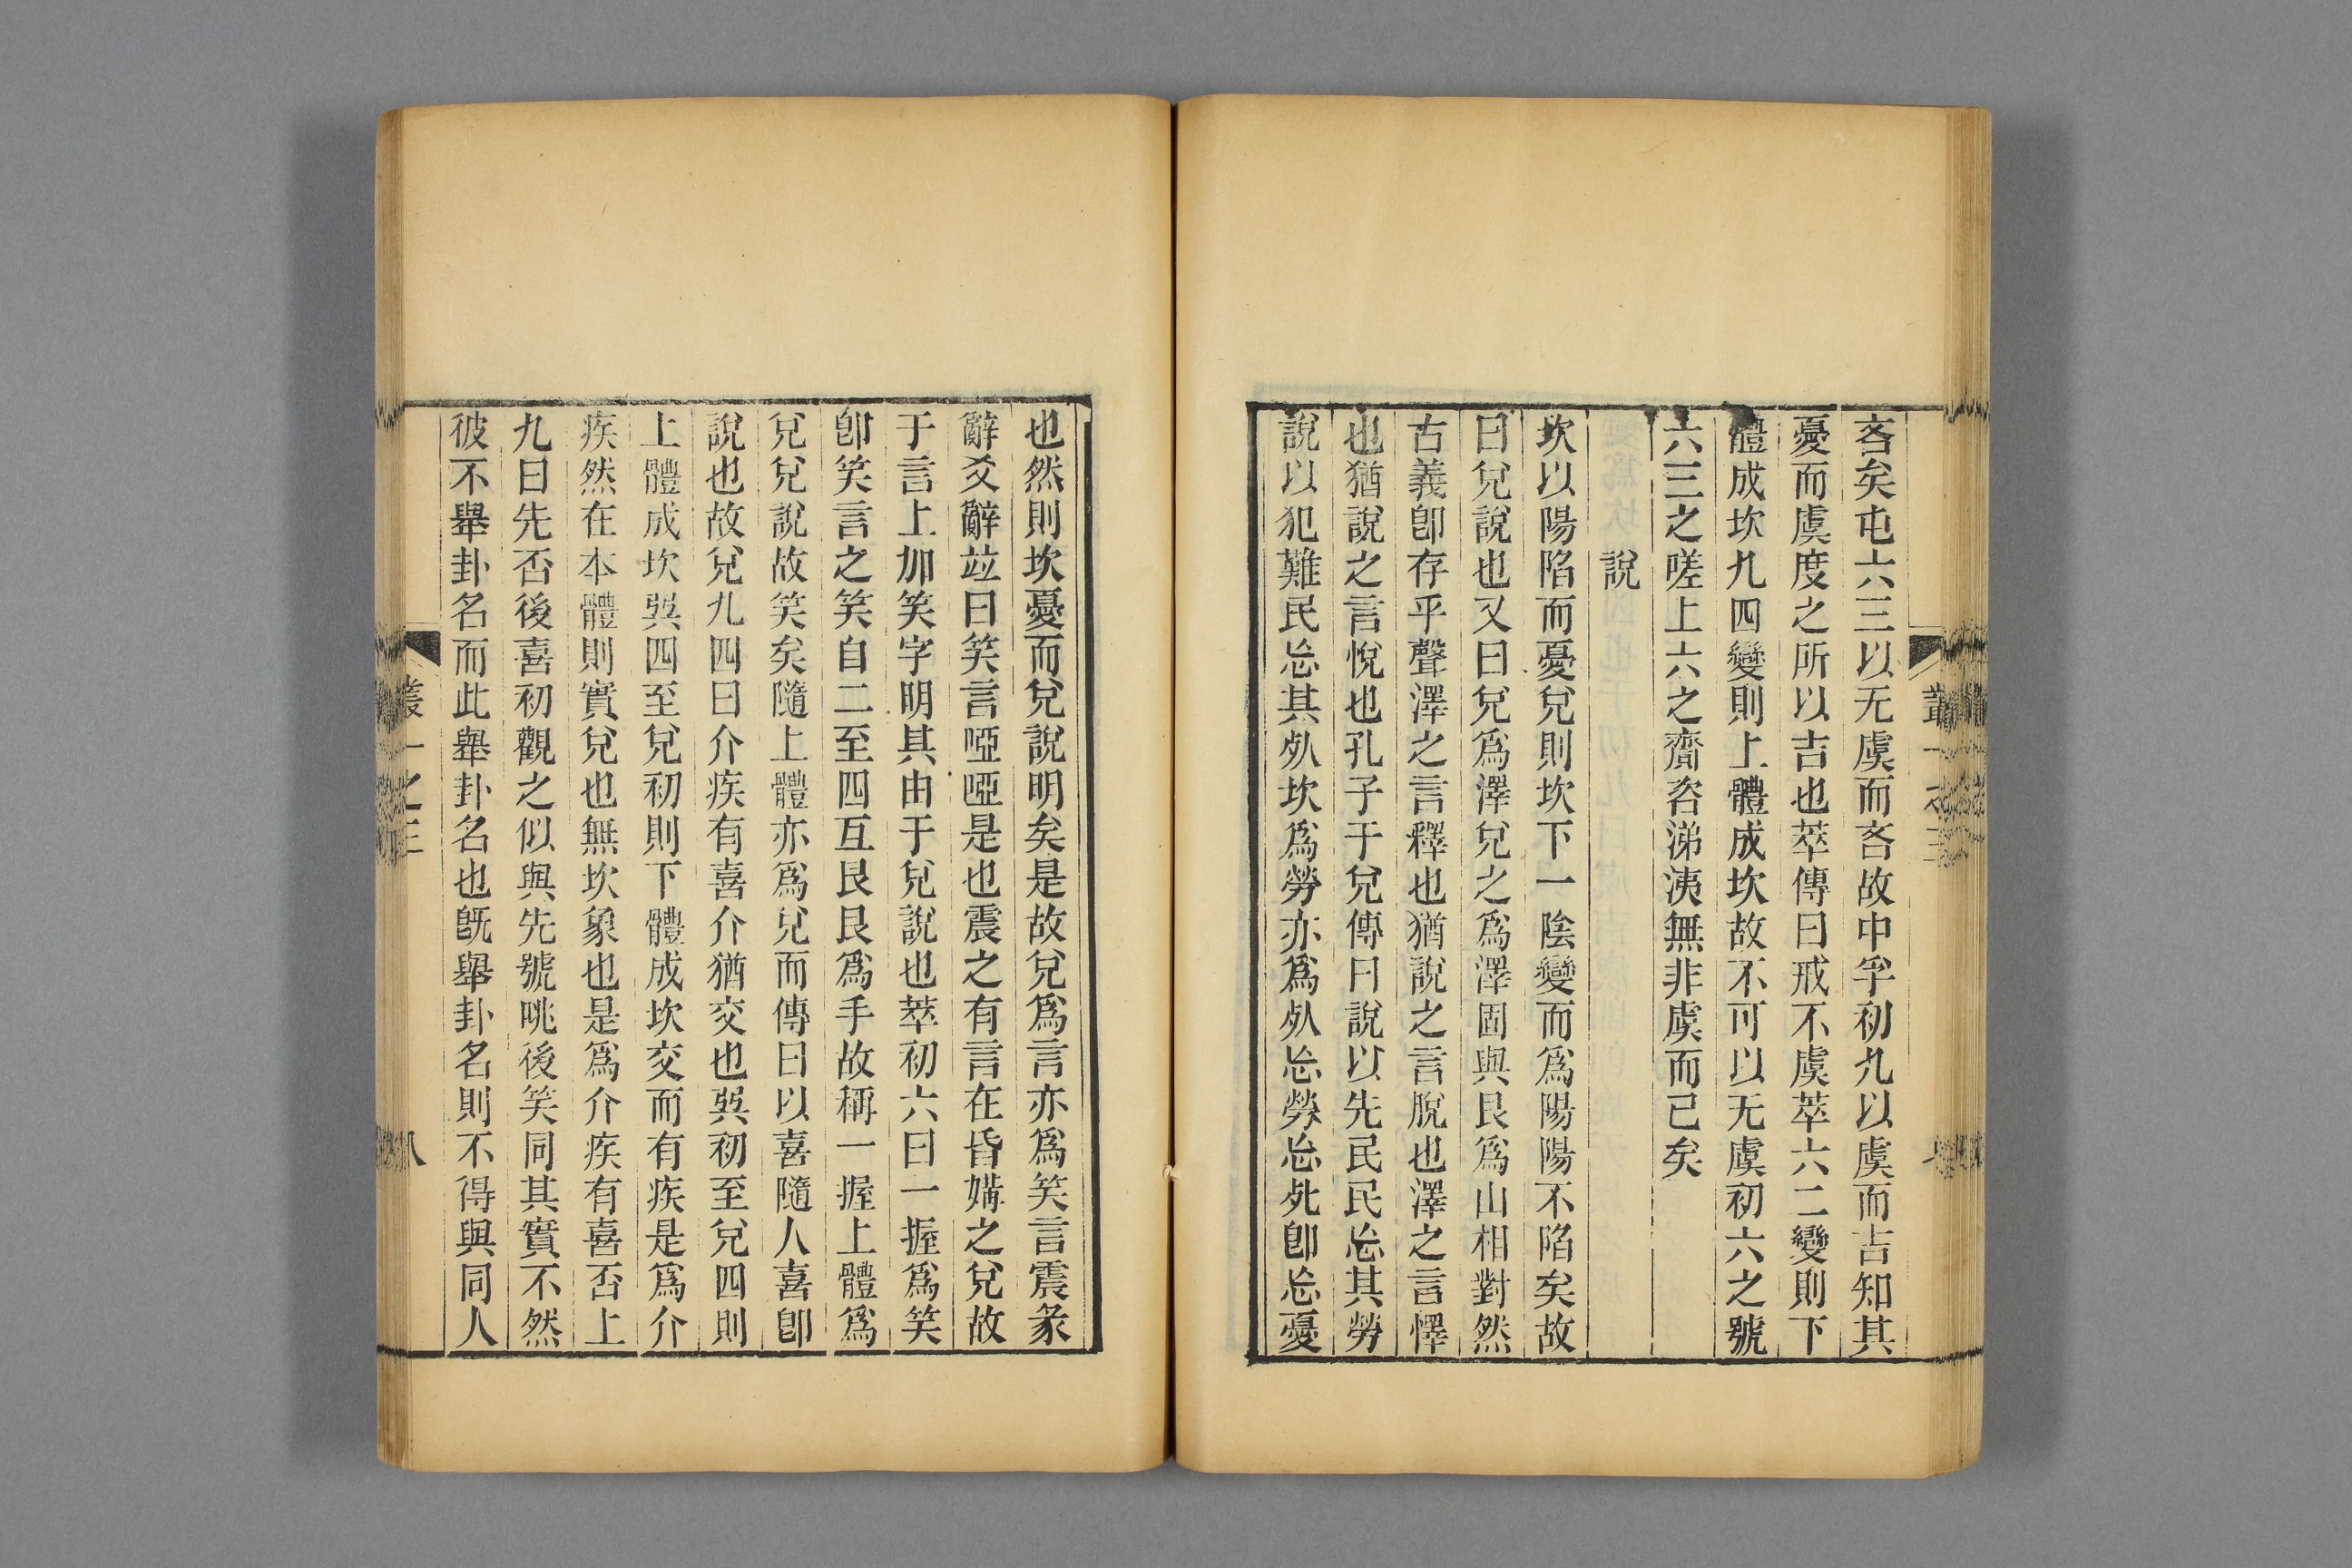 吝矣屯六三以无虞而吝故中孚初九以虞而吉知其
憂而虞度之所以吉也萃傳曰戒不虞萃六二變則下
體成坎九四變則上體成坎故不可以无虞初六之號
六三之嗟上六之齎咨涕洟無非虞而已矣
說
坎以陽陷而憂兌則坎下一陰變而爲陽陽不陷矣故
曰兌說也又曰兌爲澤兌之爲澤固與艮爲山相對然
古義卽存乎聲澤之言釋也猶說之言脫也澤之言懌
也猶說之言悅也孔子于兌傳曰說以先民民忘其勞
說以犯難民忘其死坎爲勞亦爲死忘勞忘死卽忘憂
也然則坎憂而兌說明矣是故兌爲言亦爲笑言震彖
辭爻辭竝曰笑言啞啞是也震之有言在昏媾之兌故
于言上加笑字明其由于兌說也萃初六曰一握爲笑
卽笑言之笑自二至四互艮艮爲手故稱一握上體爲
兌兌說故笑矣隨上體亦爲兌而傳曰以喜隨人喜卽
說也故兌九四曰介疾有喜介猶交也巽初至兌四則
上體成坎巽四至兌初則下體成坎交而有疾是爲介
疾然在本體則實兌也無坎象也是爲介疾有喜否上
九曰先否後喜初觀之似與先號咷後笑同其實不然
彼不舉卦名而此舉卦名也旣舉卦名則不得與同人
叢一之三
八